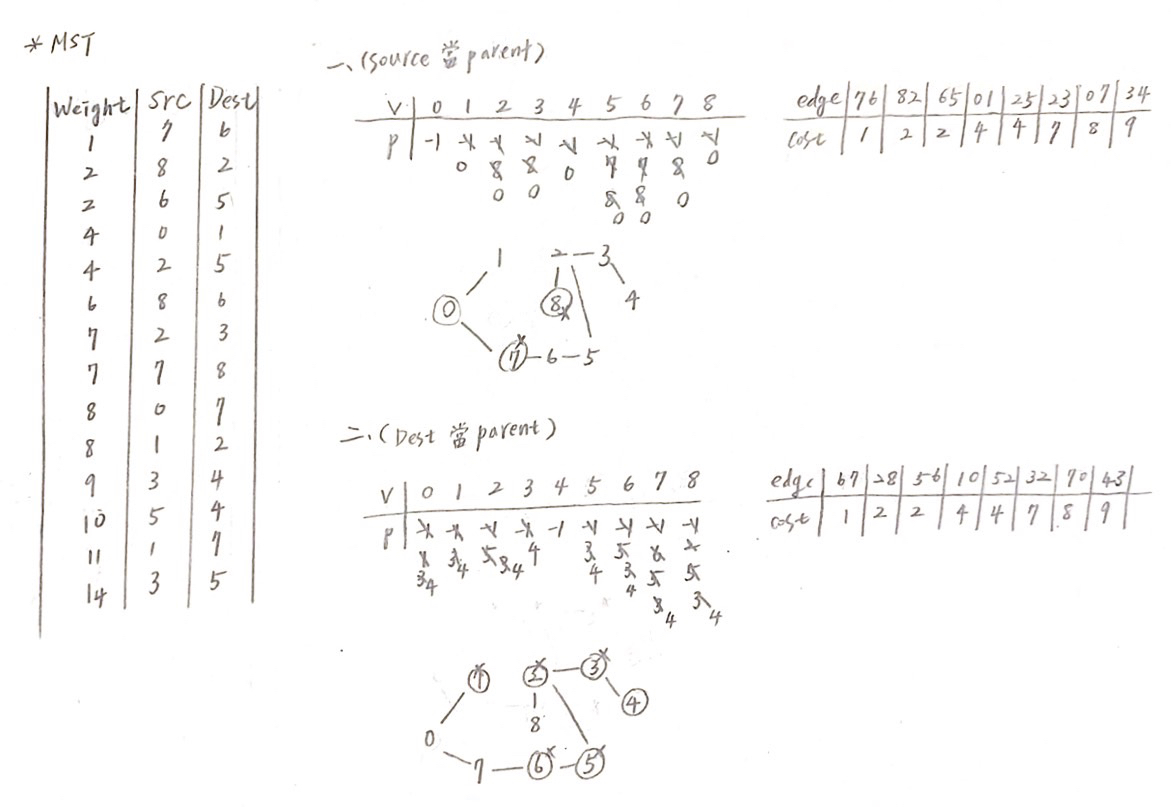 * MST
Weight Src Dest
1 7 6
2 8 2
2 6 5
4 0 1
4 2 5
6 8 6
7 2 3
7 7 8
8 0 7
8 1 2
9 3 4
10 5 4
11 1 7
14 3 5
一、(Source 當 parent)
V 0 1 2 3 4 5 6 7 8
P -1
0 8 8 0 7 7 8 0
0 0 8 8 0
0 0
edge 76 82 65 01 25 23 07 34
cost 1 2 2 4 4 7 8 9
1 2 3
0 8 4
7 6 5
二、(Dest 當 parent)
V 0 1 2 3 4 5 6 7 8
P -1
edge 67 28 56 10 52 32 70 43
cost 1 2 2 4 4 7 8 9
1 2 3
8 4
0
7 6 5